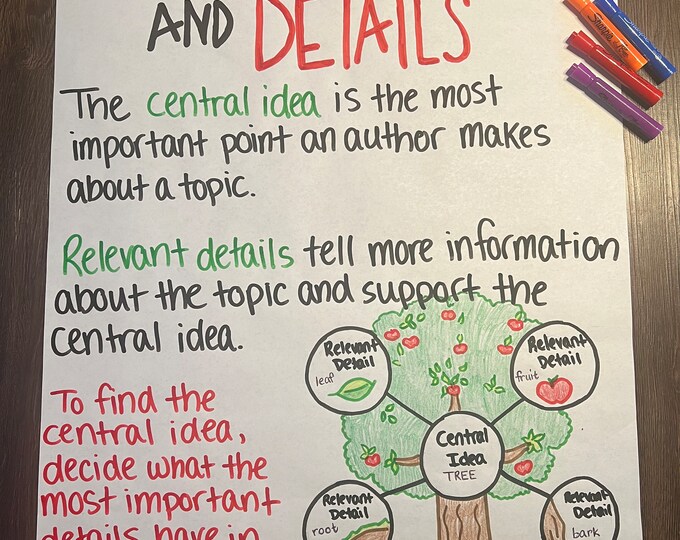 AND DETAILS
The central idea is the most
important point an author makes
about a topic.
Relevant details tell more information
about the topic and support the
central idea.
To find the
central idea,
decide what the
most important
details have in
Relevant
Detail
leaf
Relevant
Detail
fruit
Central
Idea
TREE
Relevant
Detail
root
Relevant
Detail
bark
Sharpie